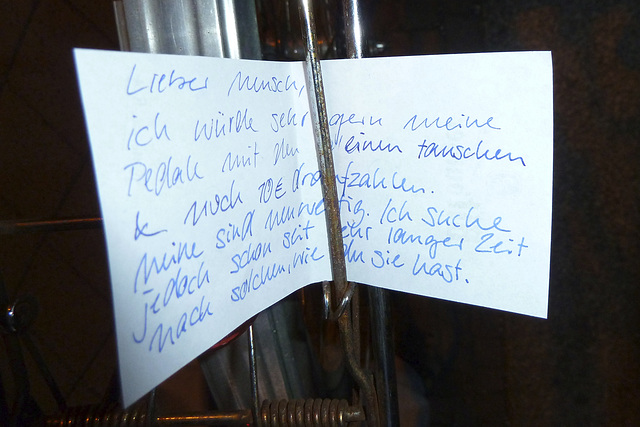 Lieber Mensch,
ich würde sehr gern meine
Pedale mit den einen tauschen
& noch 10€ draufzahlen.
meine sind neuwertig. Ich suche
jedoch schon seit sehr langer Zeit
nach solchen, wie du sie hast.